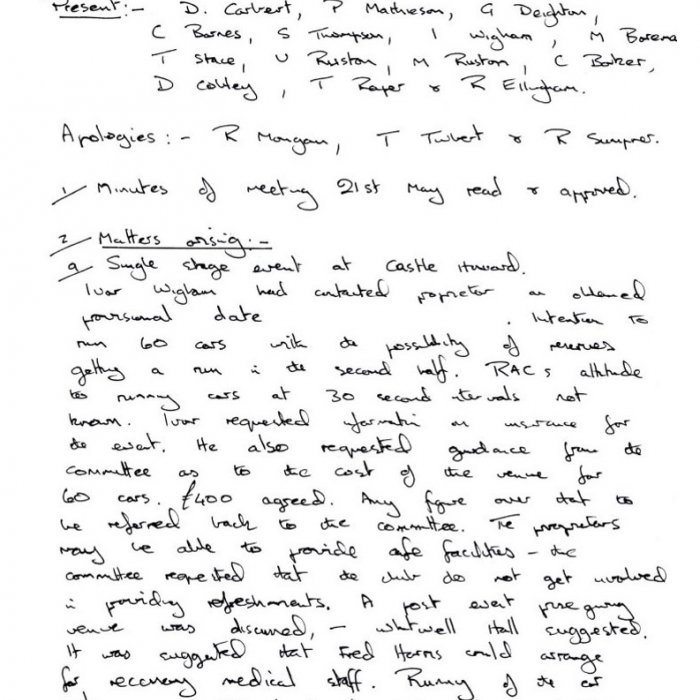 Present:- D. Carbert, P Mathieson, G Deighton,
C Barnes, S Thompson, I Wigham, M Borema
T Stace, V Ruston, M Ruston, C Barker,
D Cobley, T Raper & R Ellingham.
Apologies:- R Morgan, T Turbert & R Sumpner.
1/ Minutes of meeting 21st May read & approved.
2/ Matters arising:-
a/ Single stage event at Castle Howard.
Ivor Wigham had contacted proprietor an obtained
provisional date . Intention to
run 60 cars with the possibility of reserves
getting a run in the second half. RAC s attitude
to running cars at 30 second intervals not
known. Ivor requested information on insurance for
the event. He also requested guidance from the
committee as to the cost of the venue for
60 cars. £400 agreed. Any figure over that to
be referred back to the committee. The proprietors
may be able to provide cafe facilities - the
committee requested that the club do not get involved
in providing refreshments. A post event prize giving
venue was discussed, - Whitwell Hall suggested.
It was suggested that Fred Harris could arrange
for recovery medical staff. Running of the car